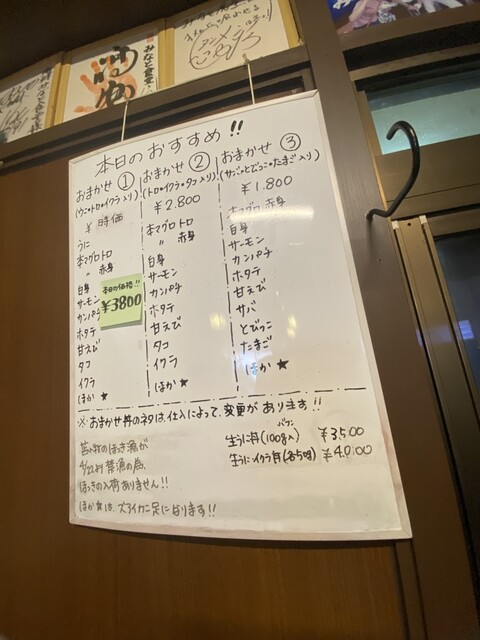 みなと食堂
本日のおすすめ!!
おまかせ①
(ウニ•トロ•イクラ入り)
¥ 時価
うに
本マグロトロ
〃 赤身
白身
サーモン
カンパチ
ホタテ
甘えび
タコ
イクラ
ほか ★
本日の価格!!
¥3800
おまかせ②
(トロ•イクラ•タコ入り)
¥2.800
本マグロトロ
〃 赤身
白身
サーモン
カンパチ
ホタテ
甘えび
タコ
イクラ
ほか ★
おまかせ③
(サバ•とびっこ•たまご入り)
¥1.800
本マグロ赤身
白身
サーモン
カンパチ
ホタテ
甘えび
サバ
とびっこ
たまご
ほか ★
※おまかせ丼のネタは、仕入によって、変更があります!!
苫小牧のほっき漁が
禁漁の為、
ほっきの入荷ありません!!
ほか★は、ズワイカニ足になります!!
生うに丼(100g入) ¥3500
生うにイクラ丼(各50g) ¥4000